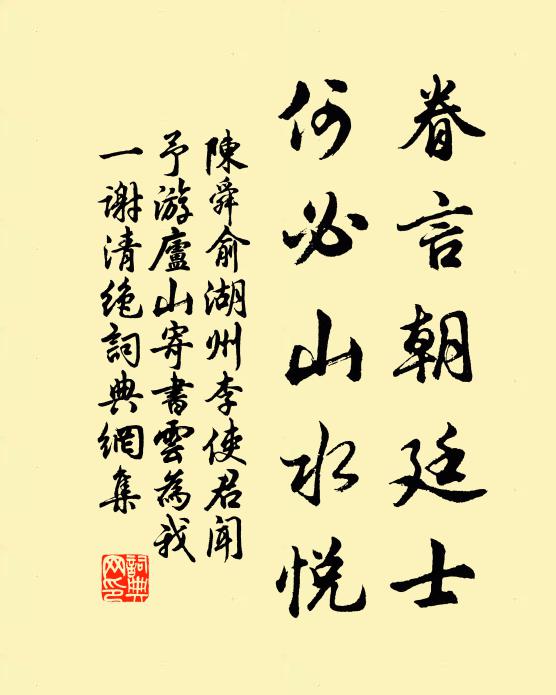 眷言朝廷士
何必山水悦
陳舜俞湖州李使君聞
予游廬山寄書雲為我
一谢清绝詞典網集
詞典网印